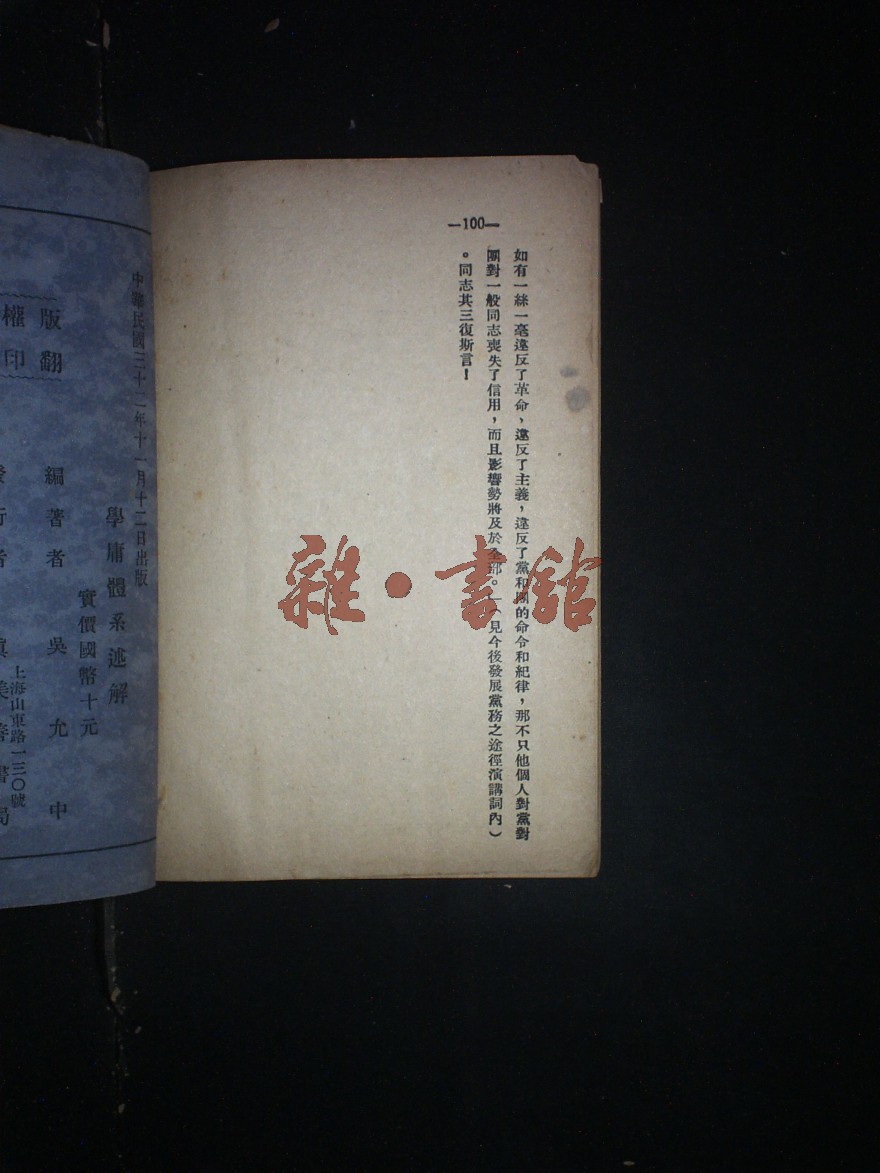 —100—
如有一絲一毫違反了革命，違反了主義，違反了黨和團的命令和紀律，那不只他個人對黨對
團對一般同志喪失了信用，而且影響勢將及於全部。」（見今後發展黨務之途徑演講詞內）
。同志其三復斯言！
雜·書館
中華民國三十二年十一月十二日出版
學庸體系述解
實價國幣十元
版權
翻印
編著者 吳允中
發行者 真美善書局
上海山東路一三〇號